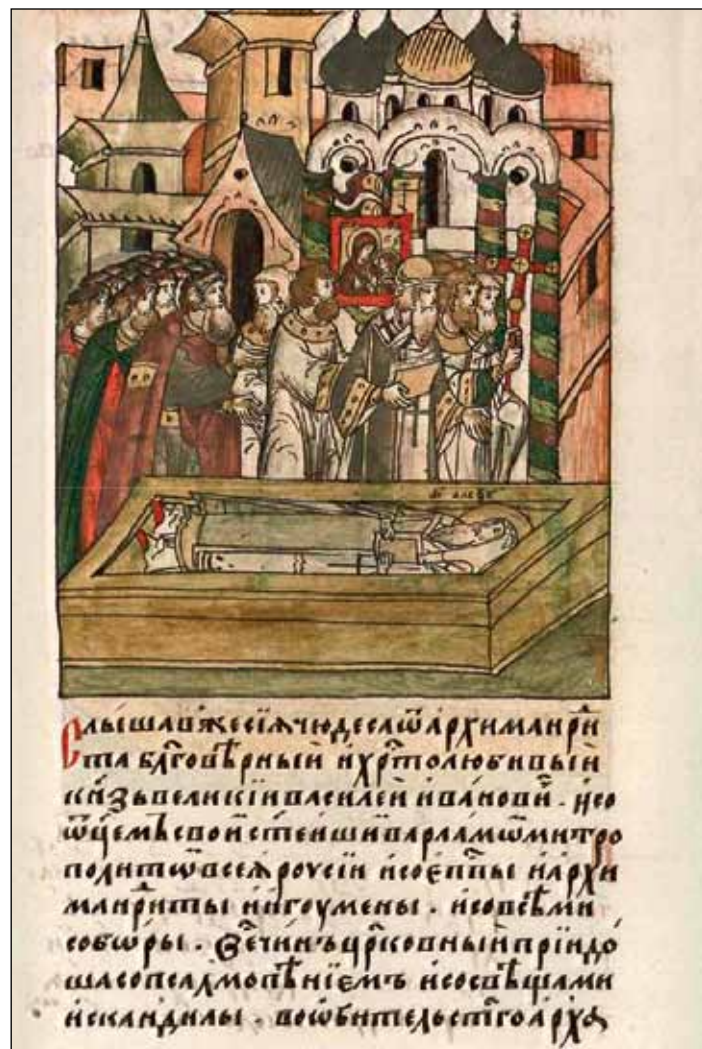 Слышав же сїѧ чюдеса ѿ архимандри
та бл҃говѣрный и хрⷭ҇толюбивый
кн҃зь великїи василей иванови̾ . и со
ѿц҃емъ свои̾ ст҃ѣйши̾ варламѡ̾ митро
политѡ̾ всеѧ роусїи и со еп҃пы и архи
мандриты и игоумены . и со всѣми
соборы . чи́нъ цр҃ковный прїидо́
ша со псалмопѣнїемъ и со свѣщами
и с кандилы . во ѡбитель ст҃го арха